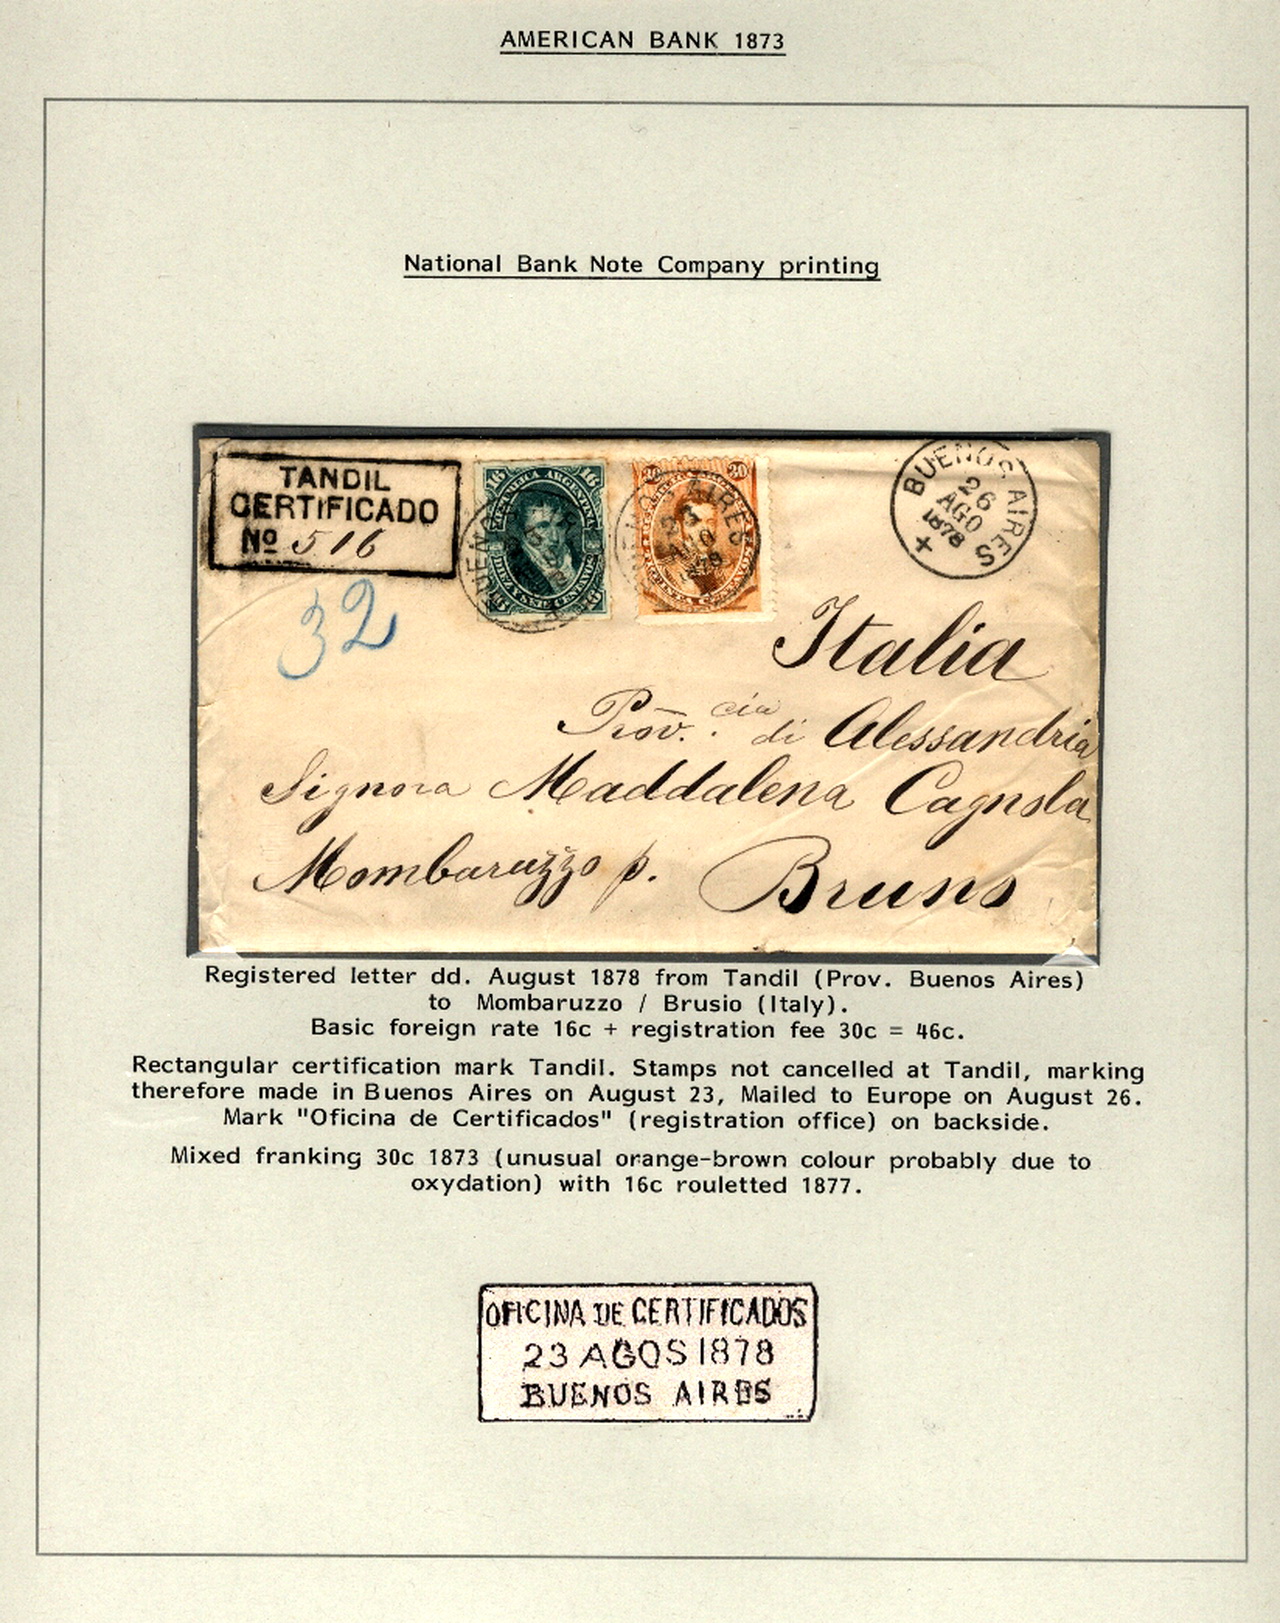 AMERICAN BANK 1873
National Bank Note Company printing
TANDIL
CERTIFICADO
Nº 516
16 16
REPUBLICA ARGENTINA
DIEZ Y SEIS CENTAVOS
30 30
TREINTA CENTAVOS
BUENOS AIRES
23
AGO
1878
BUENOS AIRES
26
AGO
1878
32
Italia
Prov.cia di Alessandria
Signora Maddalena Cagnola
Mombaruzzo p. Bruno
Registered letter dd. August 1878 from Tandil (Prov. Buenos Aires)
to Mombaruzzo / Brusio (Italy).
Basic foreign rate 16c + registration fee 30c = 46c.
Rectangular certification mark Tandil. Stamps not cancelled at Tandil, marking
therefore made in Buenos Aires on August 23, Mailed to Europe on August 26.
Mark "Oficina de Certificados" (registration office) on backside.
Mixed franking 30c 1873 (unusual orange-brown colour probably due to
oxydation) with 16c rouletted 1877.
OFICINA DE CERTIFICADOS
23 AGOS 1878
BUENOS AIRES